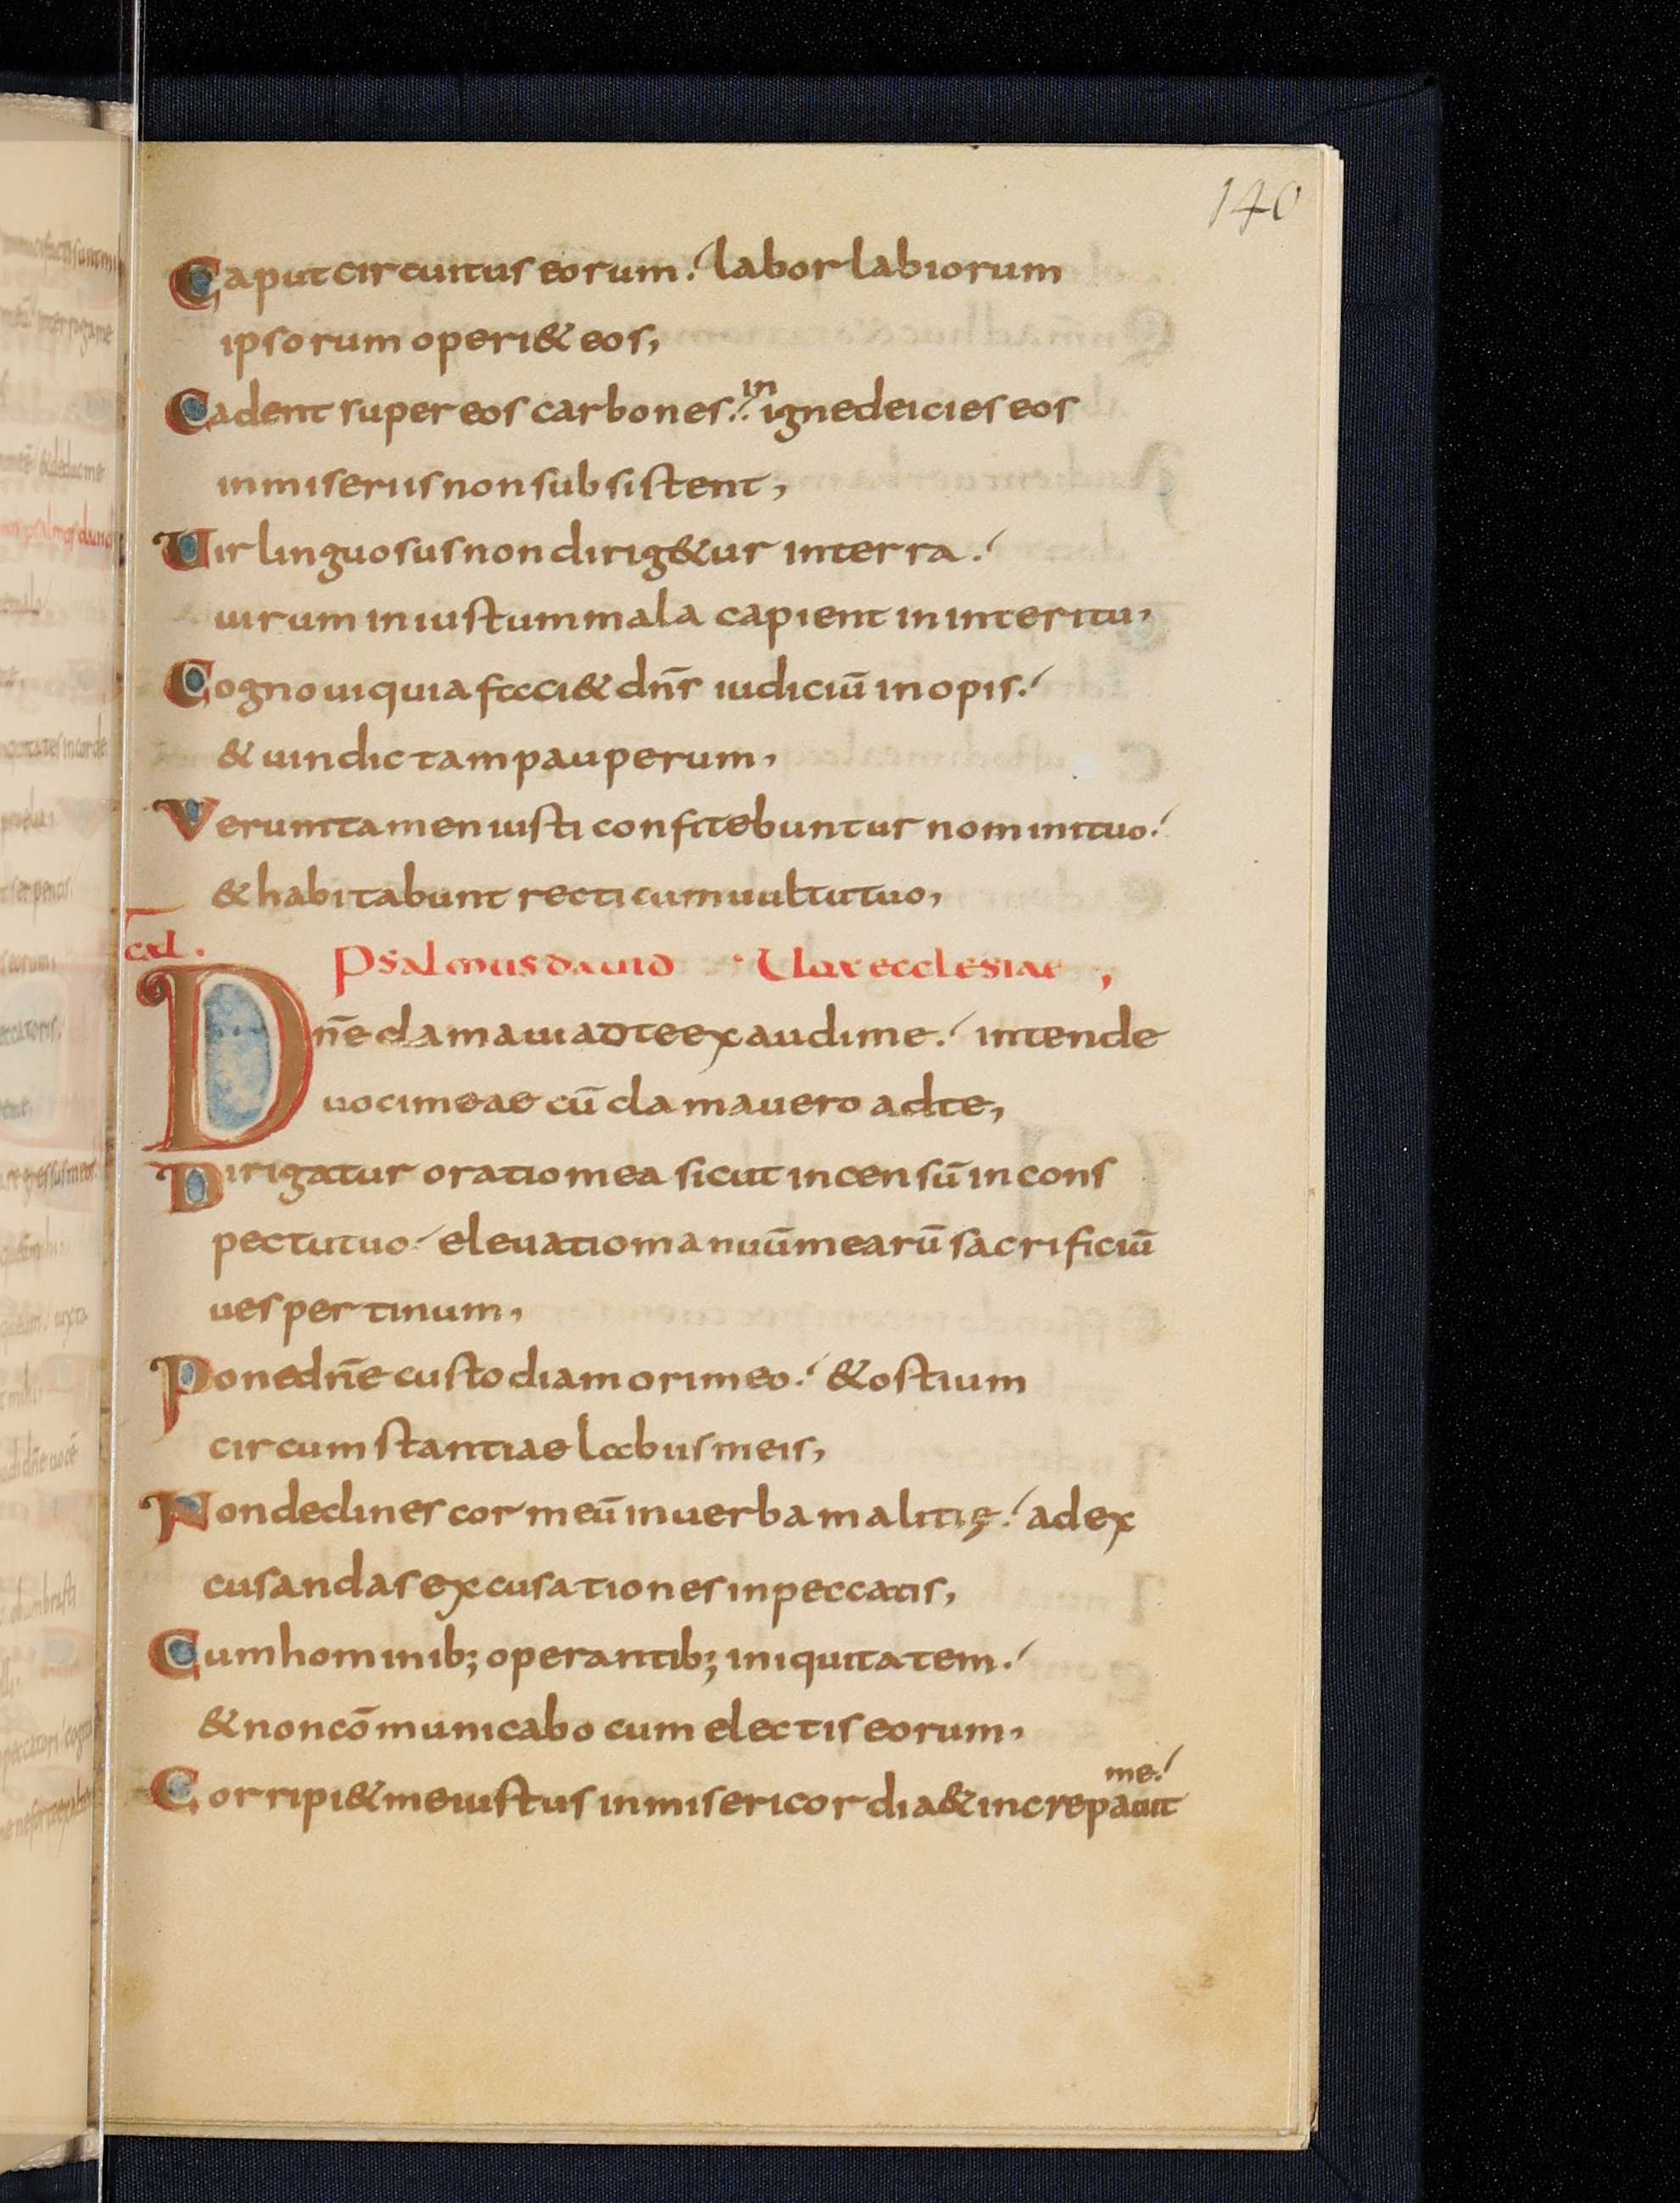 140
Caput circuitus eorum. labor labiorum
ipsorum operi& eos,
Cadent super eos carbones. in igne deicies eos
in miseriis non subsistent,
Uir linguosus non dirig&ur in terra.
uirum iniustum mala capient in interitu,
Cognoui quia faci& dn̄s iudiciū inopis.
& uindictam pauperum,
Veruntamen iusti confitebuntur nomini tuo.
& habitabunt recti cum uultu tuo,
cxl. Psalmus dauid Uox ecclesiae,
Dn̄e clamaui ad te exaudi me. intende
uoci meae cū clamauero ad te,
Dirigatur oratio mea sicut incensū in cons
pectu tuo. eleuatio manuū mearū sacrificiū
uespertinum,
Pone dn̄e custodiam ori meo. & ostium
circumstantiae labus meis,
Non declines cor meū in uerba malitię. ad ex
cusandas excusationes in peccatis,
Cum hominib; operantib; iniquitatem.
& non cōmunicabo cum electis eorum,
Corripi& me iustus in misericordia & increpauit
me.